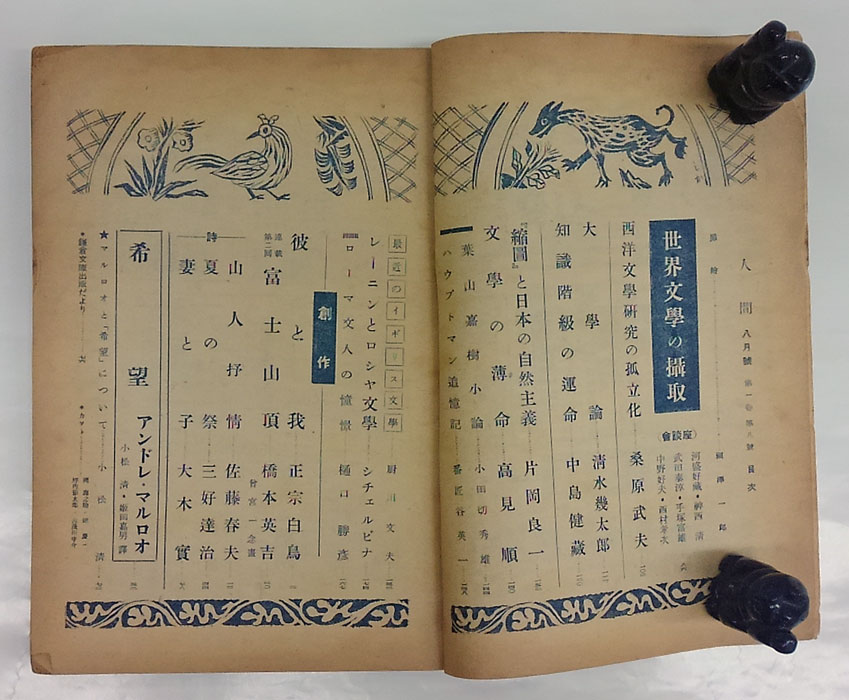 人間 八月號 第一巻第八號 目次
世界文學の攝取
(座談會)
河盛好藏・神西 清
武田泰淳・手塚富雄
中野好夫・西村孝次
西洋文學研究の孤立化 桑原武夫
大學論 清水幾太郎
知識階級の運命 中島健藏
『縮圖』と日本の自然主義 片岡良一
文學の薄命 高見順
葉山嘉樹小論 小田切秀雄
ハウプトマン追憶記 番匠谷英一
最近のイギリス文學 厨川文夫
レーニンとロシヤ文學 シチェルビナ
ローマ文人の憧憬 樋口勝彦
創作
彼と我 正宗白鳥
連載第二回 富士山頂 橋本英吉
曾宮一念畫
山人抒情 佐藤春夫
詩 夏の祭 三好達治
妻と子 大木實
希望 アンドレ・マルロオ
小松清・
★マルロオと「希望」について 小松清
鎌倉文庫出版だより